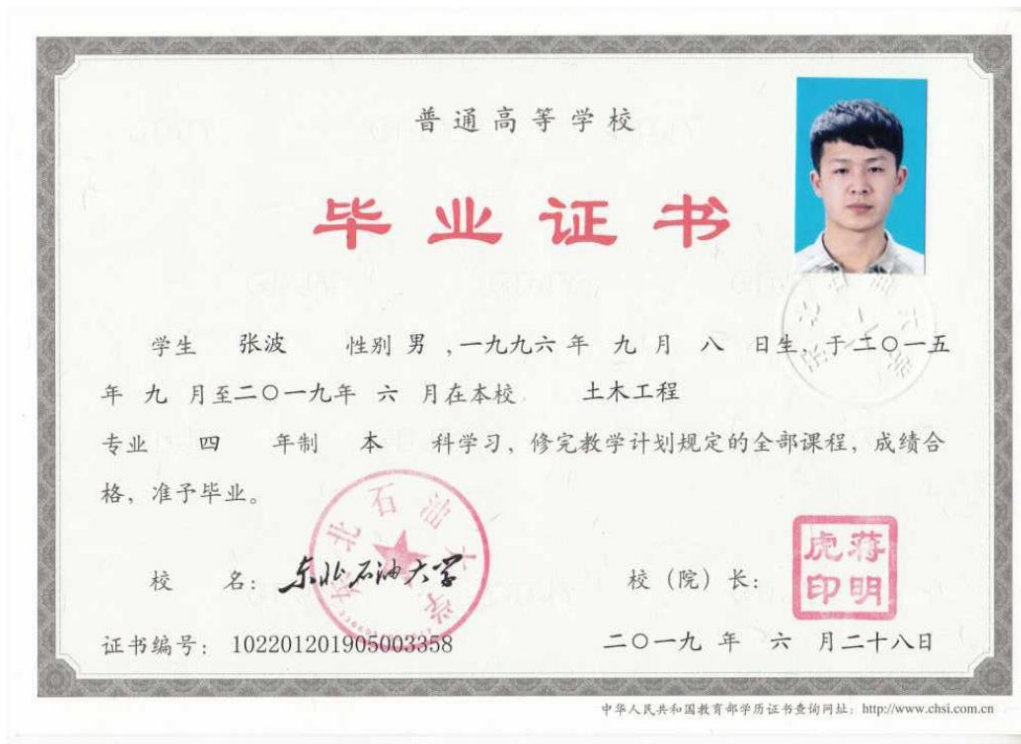 普通高等学校
毕业证书
学生 张波 性别 男 ,一九九六 年 九 月 八 日生, 于二〇一五
年 九 月至二〇一九年 六 月在本校 土木工程
专业 四 年制 本 科学习，修完教学计划规定的全部课程，成绩合
格，准予毕业。
东北石油大学
校 名： 东北石油大学
校（院）长：
蒋明
虎印
证书编号： 102201201905003358
二〇一九 年 六 月二十八日
中华人民共和国教育部学历证书查询网址： http://www.chsi.com.cn